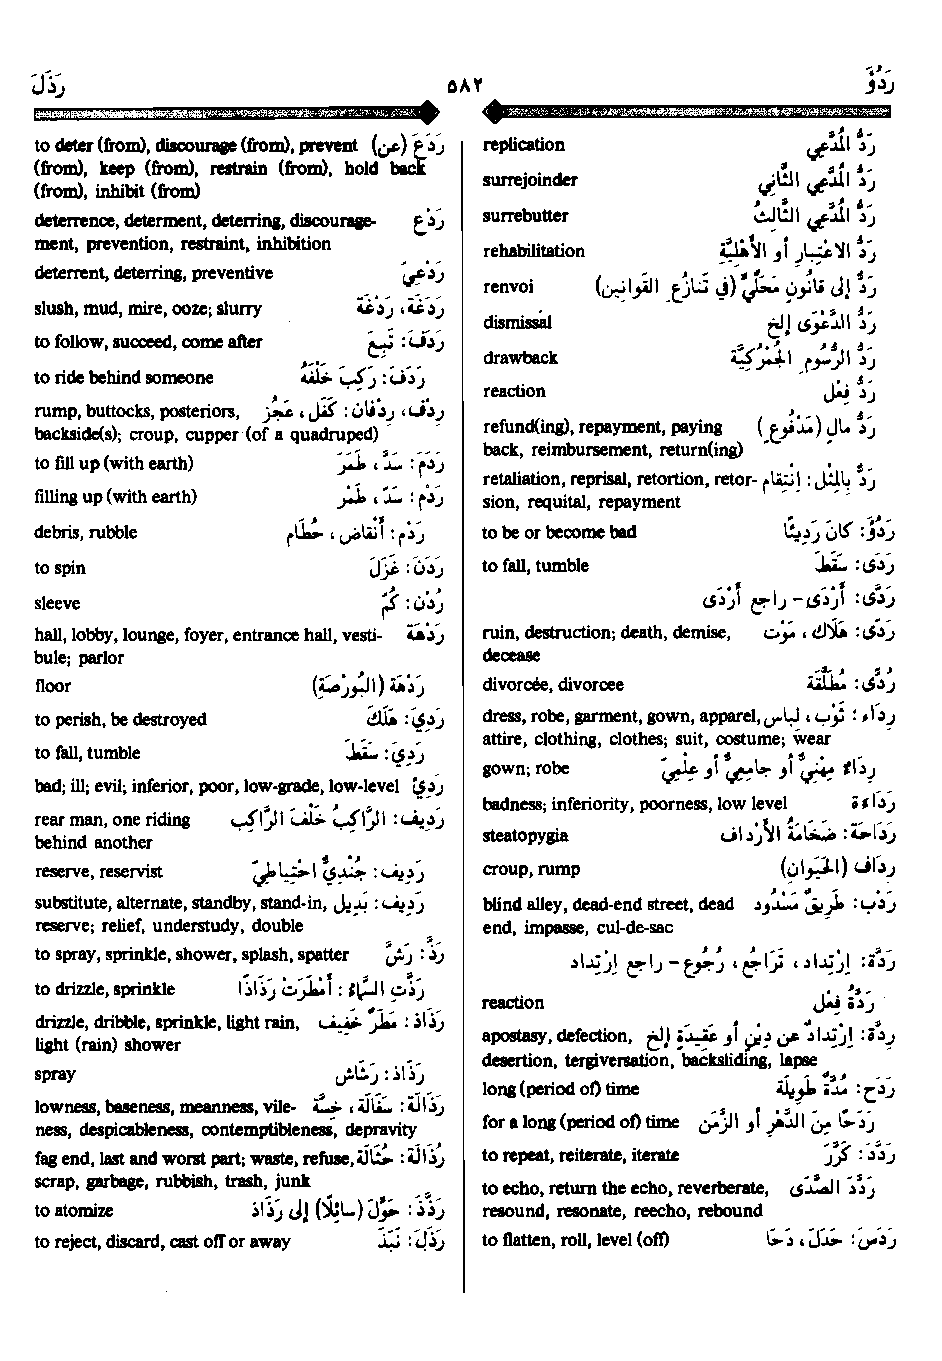 رَدُؤَ
٥٨٢
رَذَلَ
replication رَدُّ المُدَّعِي
surrejoinder رَدُّ المُدَّعِي الثَّانِي
surrebutter رَدُّ المُدَّعِي الثَّالِثُ
rehabilitation رَدُّ الاعْتِبَارِ أو الأَهْلِيَّةِ
renvoi رَدٌّ إلى قَانُونٍ مَحَلِّيٍّ (في تَنَازُعِ القَوانِين)
dismissal رَدُّ الدَّعْوَى إلخ
drawback رَدُّ الرُّسُومِ الجُمْرُكِيَّة
reaction رَدُّ فِعْل
refund(ing), repayment, paying رَدُّ مالٍ (مَدْفُوعٍ)
back, reimbursement, return(ing)
retaliation, reprisal, retortion, retor- رَدٌّ بِالمِثْل: اِنْتِقام
sion, requital, repayment
to be or become bad رَدُؤَ: كانَ رَدِيئًا
to fall, tumble رَدَى: سَقَطَ
رَدَّى: أَرْدَى- راجع أَرْدَى
ruin, destruction; death, demise, رَدًى: هَلَاك، مَوْت
decease
divorcée, divorcee رُدَّى: مُطَلَّقَة
dress, robe, garment, gown, apparel, رِدَاء: ثَوْب، لِبَاس
attire, clothing, clothes; suit, costume; wear
gown; robe رِدَاءٌ مِهْنِيٌّ أو جامِعِيٌّ أو عِلْمِيّ
badness; inferiority, poorness, low level رَدَاءة
steatopygia رَدَاحَة: ضَخَامَةُ الأَرْدَاف
croup, rump رِدَاف (الحَيَوان)
blind alley, dead-end street, dead رَدْب: طَرِيقٌ مَسْدُود
end, impasse, cul-de-sac
رَدَّة: اِرْتِداد، تَرَاجُع، رُجُوع- راجع اِرْتِداد
reaction رَدَّةُ فِعْل
apostasy, defection, رِدَّة: اِرْتِدادٌ عن دِينٍ أو عَقِيدَةٍ إلخ
desertion, tergiversation, backsliding, lapse
long (period of) time رَدَح: مُدَّةٌ طَوِيلَة
for a long (period of) time رَدَحًا مِنَ الدَّهْرِ أو الزَّمَن
to repeat, reiterate, iterate رَدَّدَ: كَرَّرَ
to echo, return the echo, reverberate, رَدَّدَ الصَّدَى
resound, resonate, reecho, rebound
to flatten, roll, level (off) رَدَسَ: حَدَلَ، دَحَا
to deter (from), discourage (from), prevent رَدَعَ (عن)
(from), keep (from), restrain (from), hold back
(from), inhibit (from)
deterrence, determent, deterring, discourage- رَدْع
ment, prevention, restraint, inhibition
deterrent, deterring, preventive رَدْعِيّ
slush, mud, mire, ooze; slurry رَدَغَة، رَدْغَة
to follow, succeed, come after رَدَفَ: تَبِعَ
to ride behind someone رَدَفَ: رَكِبَ خَلْفَهُ
rump, buttocks, posteriors, رِدْف، رِدْفان: كَفَل، عَجُز
backside(s); croup, cupper (of a quadruped)
to fill up (with earth) رَدَمَ: سَدَّ، طَمَرَ
filling up (with earth) رَدْم: سَدّ، طَمْر
debris, rubble رَدْم: أَنْقاض، حُطَام
to spin رَدَنَ: غَزَلَ
sleeve رُدْن: كُمّ
hall, lobby, lounge, foyer, entrance hall, vesti- رَدْهَة
bule; parlor
floor رَدْهَة (البُورْصَة)
to perish, be destroyed رَدِيَ: هَلَكَ
to fall, tumble رَدِيَ: سَقَطَ
bad; ill; evil; inferior, poor, low-grade, low-level رَدِيْء
rear man, one riding رَدِيف: الرَّاكِبُ خَلْفَ الرَّاكِب
behind another
reserve, reservist رَدِيف: جُنْدِيٌّ احْتِيَاطِيّ
substitute, alternate, standby, stand-in, رَدِيف: بَدِيل
reserve; relief, understudy, double
to spray, sprinkle, shower, splash, spatter رَذَّ: رَشَّ
to drizzle, sprinkle رَذَّتِ السَّمَاءُ: أَمْطَرَتْ رَذَاذًا
drizzle, dribble, sprinkle, light rain, رَذَاذ: مَطَرٌ خَفِيف
light (rain) shower
spray رَذَاذ: رَشَاش
lowness, baseness, meanness, vile- رَذَالَة: سَفَالَة، خِسَّة
ness, despicableness, contemptibleness, depravity
fag end, last and worst part; waste, refuse, رُذَالَة: حُثَالَة
scrap, garbage, rubbish, trash, junk
to atomize رَذَّذَ: حَوَّلَ (سائِلًا) إلى رَذَاذ
to reject, discard, cast off or away رَذَلَ: نَبَذَ